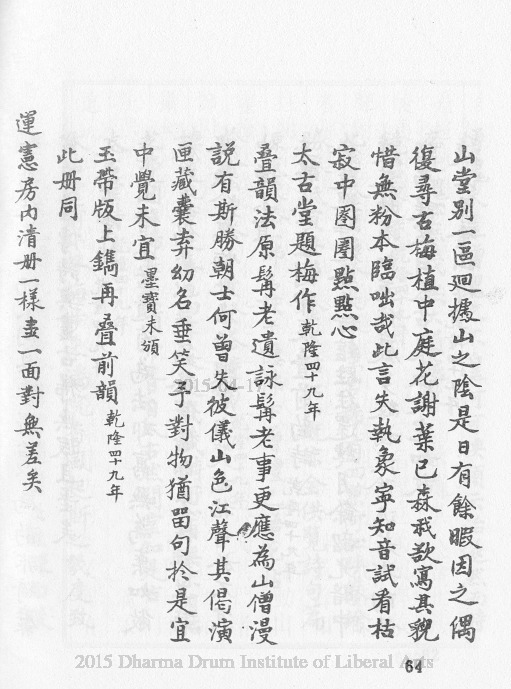 山堂別一區迴據山之陰是日有餘暇因之偶
復尋古梅植中庭花謝葉已森我欲寫其貌
惜無粉本臨咄哉此言失執象寧知音試看枯
寂中圈圈點點心
太古堂題梅作 乾隆四十九年
疊韻法原髯老遺詠髯老事更應為山僧漫
說有斯勝朝士何曾失彼儀山色江聲其偈演
匣藏囊弆幻名垂笑予對物猶留句於是宜
中覺未宜 墨寶未頒
玉帶版上鐫再疊前韻 乾隆四十九年
此册同
運憲房內清册一樣盡一面對無差矣
64
2015-04-1
2015 Dharma Drum Institute of Liberal Arts